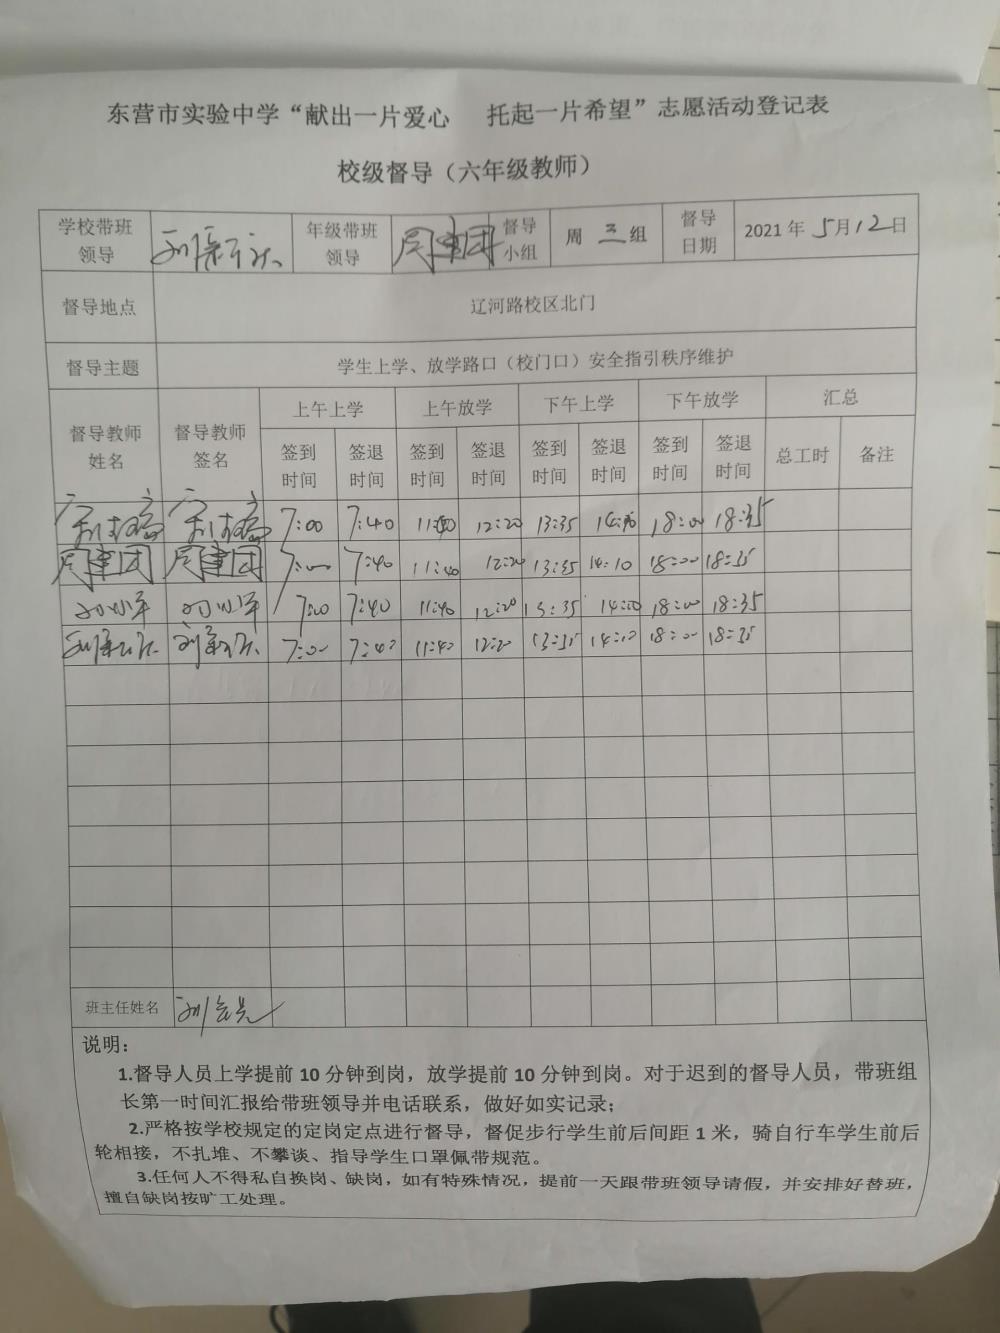 东营市实验中学“献出一片爱心 托起一片希望”志愿活动登记表
校级督导（六年级教师）
学校带班领导 年级带班领导 周建国 督导小组 周 三 组 督导日期 2021 年 5 月 12 日
督导地点 辽河路校区北门
督导主题 学生上学、放学路口（校门口）安全指引秩序维护
督导教师姓名 督导教师签名 上午上学 上午放学 下午上学 下午放学 汇总
签到时间 签退时间 签到时间 签退时间 签到时间 签退时间 签到时间 签退时间 总工时 备注
7:00 7:40 11:40 12:20 13:35 14:10 18:00 18:35
周建国 周建国 7:00 7:40 11:40 12:20 13:35 14:10 18:00 18:35
7:00 7:40 11:40 12:20 13:35 14:10 18:00 18:35
7:00 7:40 11:40 12:20 13:35 14:10 18:00 18:35
班主任姓名
说明：
1.督导人员上学提前 10 分钟到岗，放学提前 10 分钟到岗。对于迟到的督导人员，带班组
长第一时间汇报给带班领导并电话联系，做好如实记录；
2.严格按学校规定的定岗定点进行督导，督促步行学生前后间距 1 米，骑自行车学生前后
轮相接，不扎堆、不攀谈、指导学生口罩佩带规范。
3.任何人不得私自换岗、缺岗，如有特殊情况，提前一天跟带班领导请假，并安排好替班，
擅自缺岗按旷工处理。